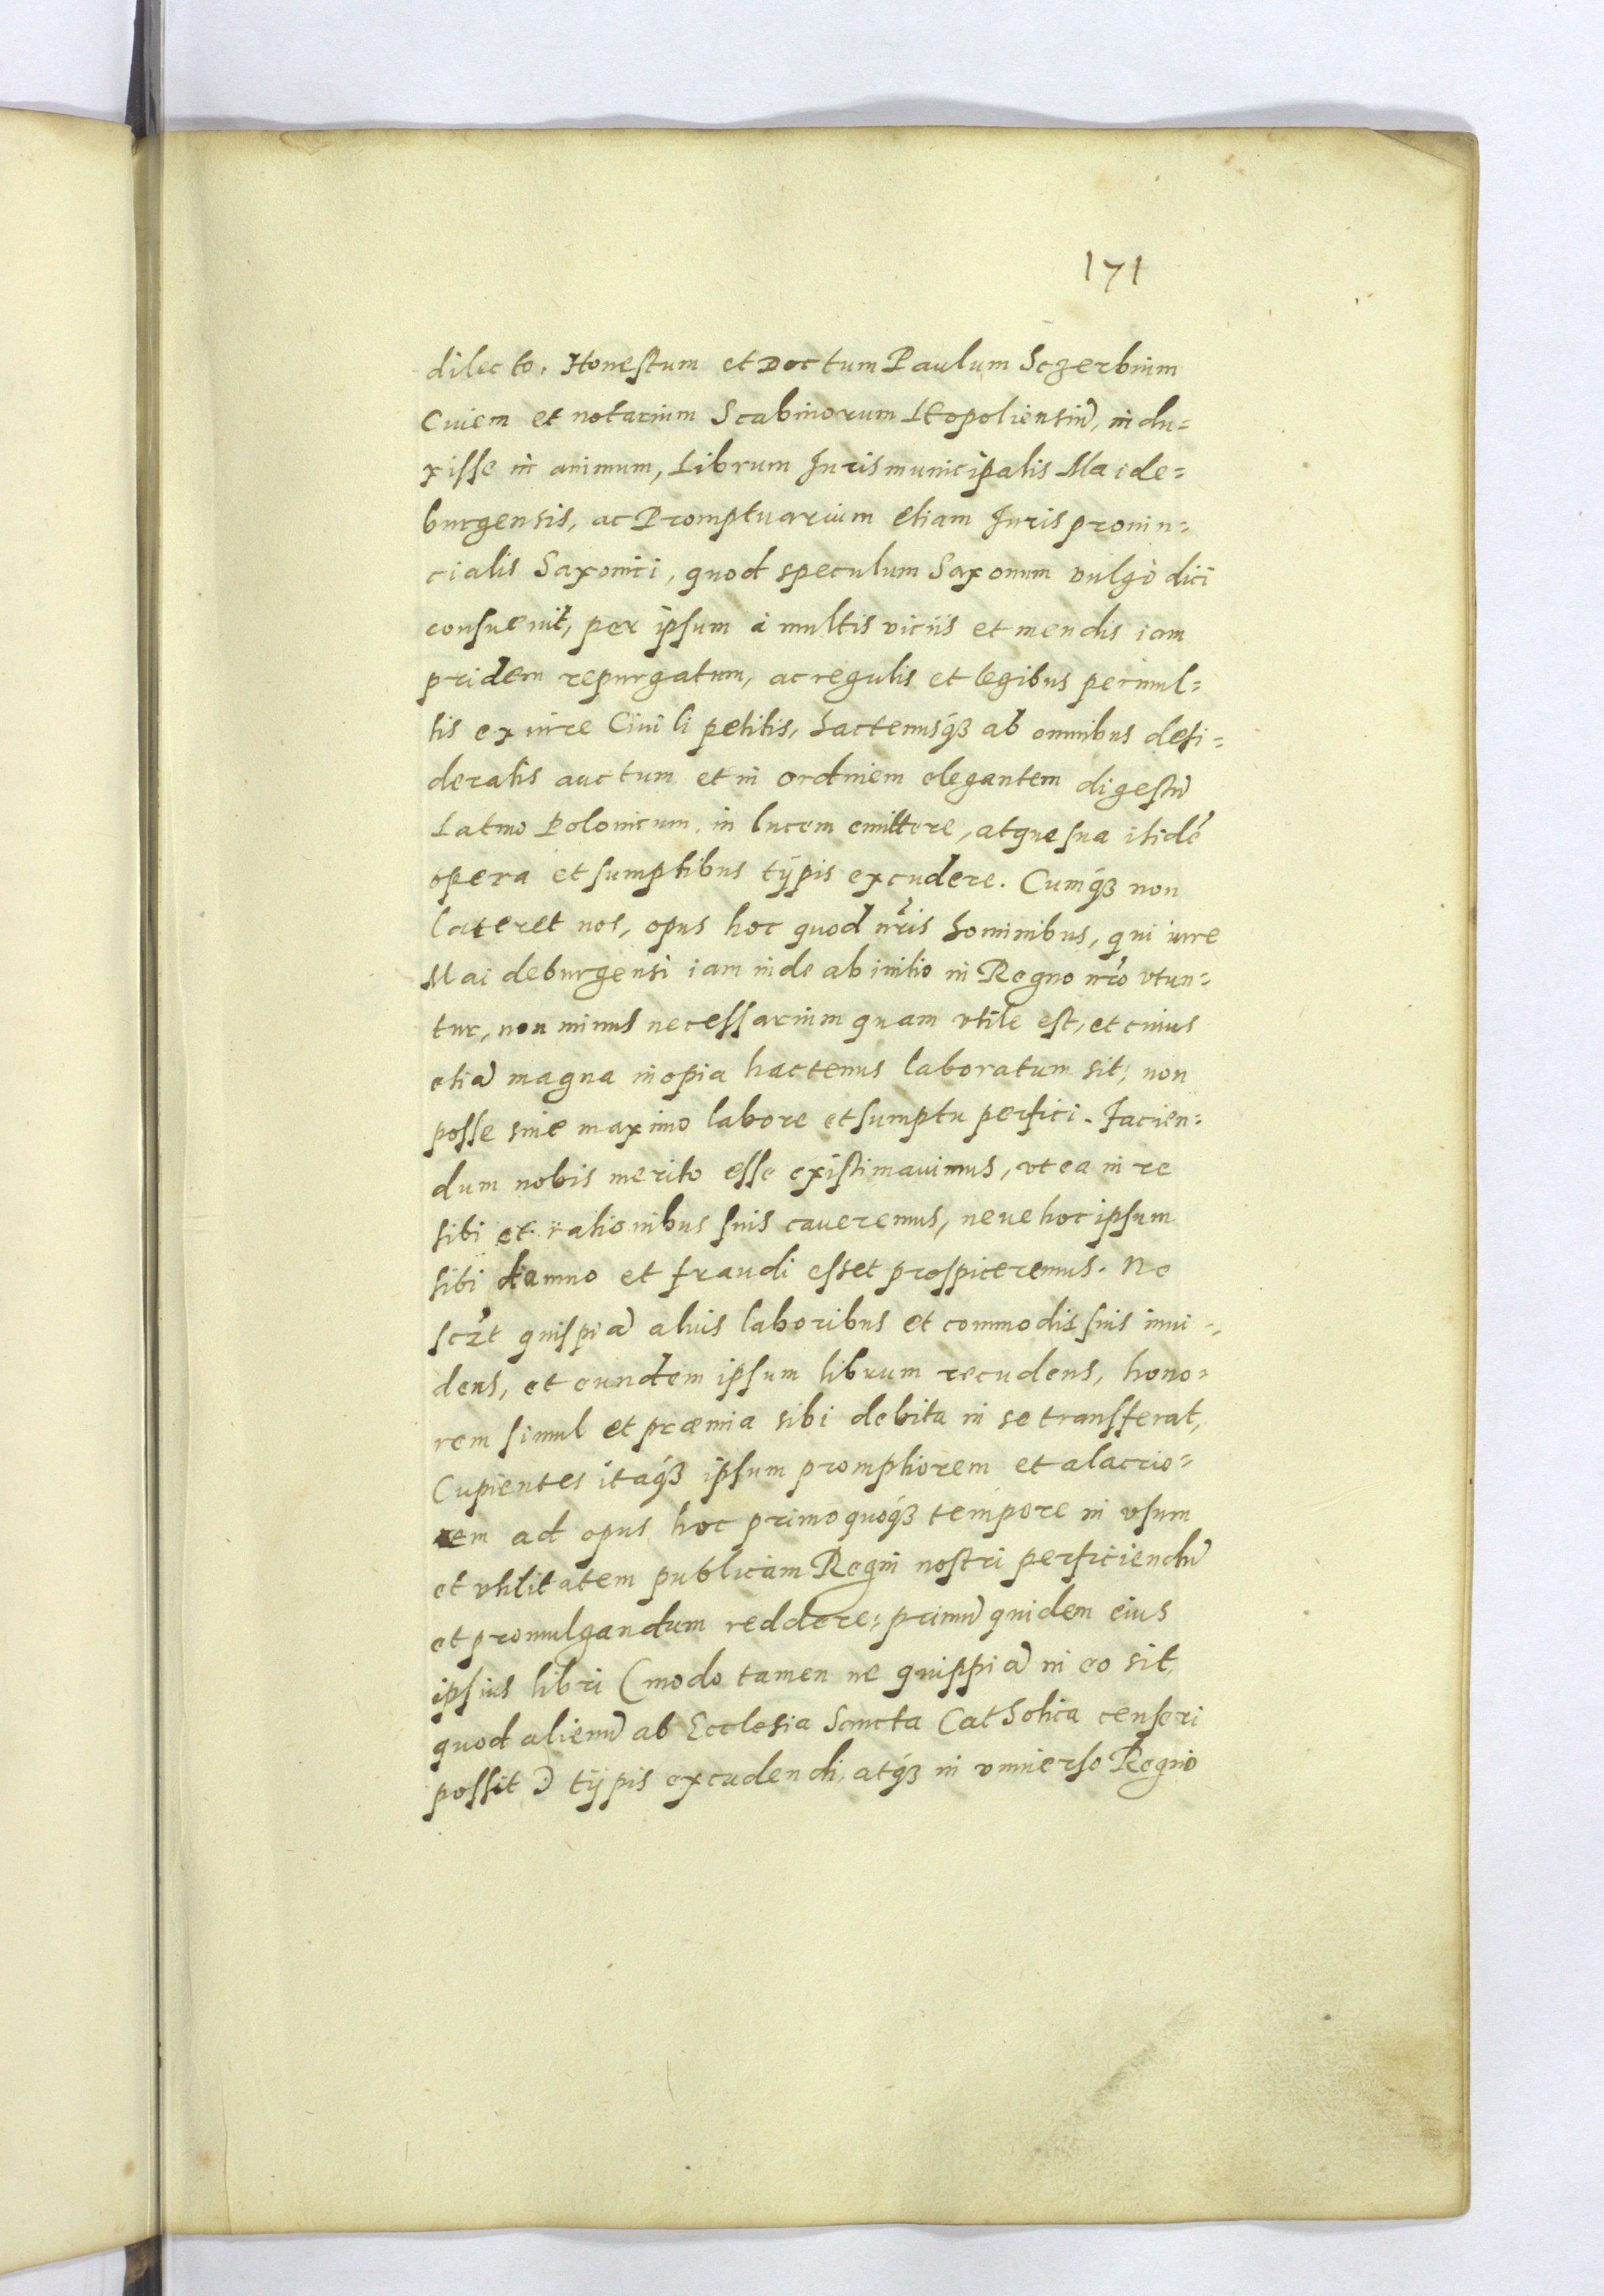 171
dilecto, Honestum et Doctum Paulum Sczerbium
Ciuem et notarium Scabinorum Leopoliensiũ, indu=
xisse in animum, Librum Juris municipalis Maide=
burgensis, ac Promptuarium etiam Juris prouin=
cialis Saxonici, quod speculum Saxonum vulgò dici
consueuit, per ipsum à multis viciis et mendis iam
pridem repurgatum, ac regulis et legibus permul=
tis ex iure Ciuili petitis, hactenusq́ꝫ ab omnibus desi=
deratis auctum et in ordinem elegantem digestũ
Latino Polonicum, in lucem emittere, atque sua itidẽ
opera et sumptibus tÿpis excudere. Cumq́ꝫ non
lateret nos, opus hoc quod nr̃is hominibus, qui iure
Maideburgensi iam inde ab initio in Regno nr̃o vtun=
tur, non minus necessarium quam vtile est, et cuius
etiã magna inopia hactenus laboratum sit, non
posse sine maximo labore et sumptu perfici. Facien=
dum nobis merito esse existimauimus, vt ea in re
sibi et rationibus suis caueremus, neue hoc ipsum
sibi damno et fraudi esset prospiceremus. Ne
scz̃t quispiã aliis laboribus et commodis suis inui=
dens, et eundem ipsum librum recudens, hono=
rem simul et præmia sibi debita in se transferat,
Cupientes itaq́ꝫ ipsum promptiorem et alacrio=
rem ad opus hoc primo quoq́ꝫ tempore in vsum
et vtilitatem publicam Regni nostri perficiendũ
et promulgandum reddere; primũ quidem eius
ipsius libri (modo tamen ne quippiã in eo sit,
quod alienũ ab Ecclesia Sancta Catholica censeri
possit) tÿpis excudendi, atq́ꝫ in vniuerso Regno